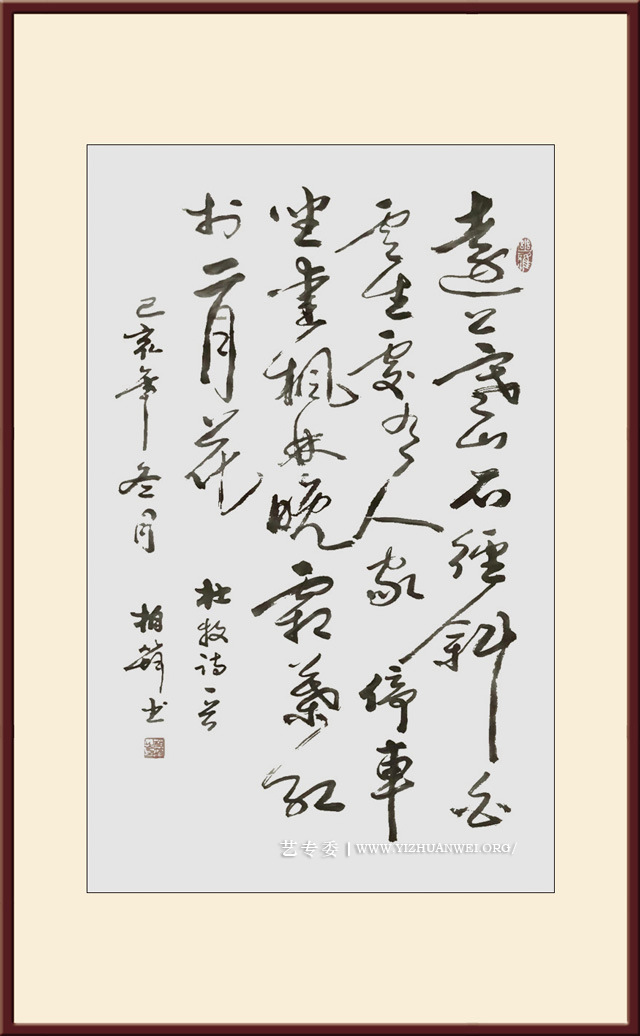 遠上寒山石徑斜白
雲生處有人家停車
坐愛楓林晚霜葉紅
於二月花
杜牧诗一首
己亥年冬月
柏书
艺专委 | WWW.YIZHUANWEI.ORG/